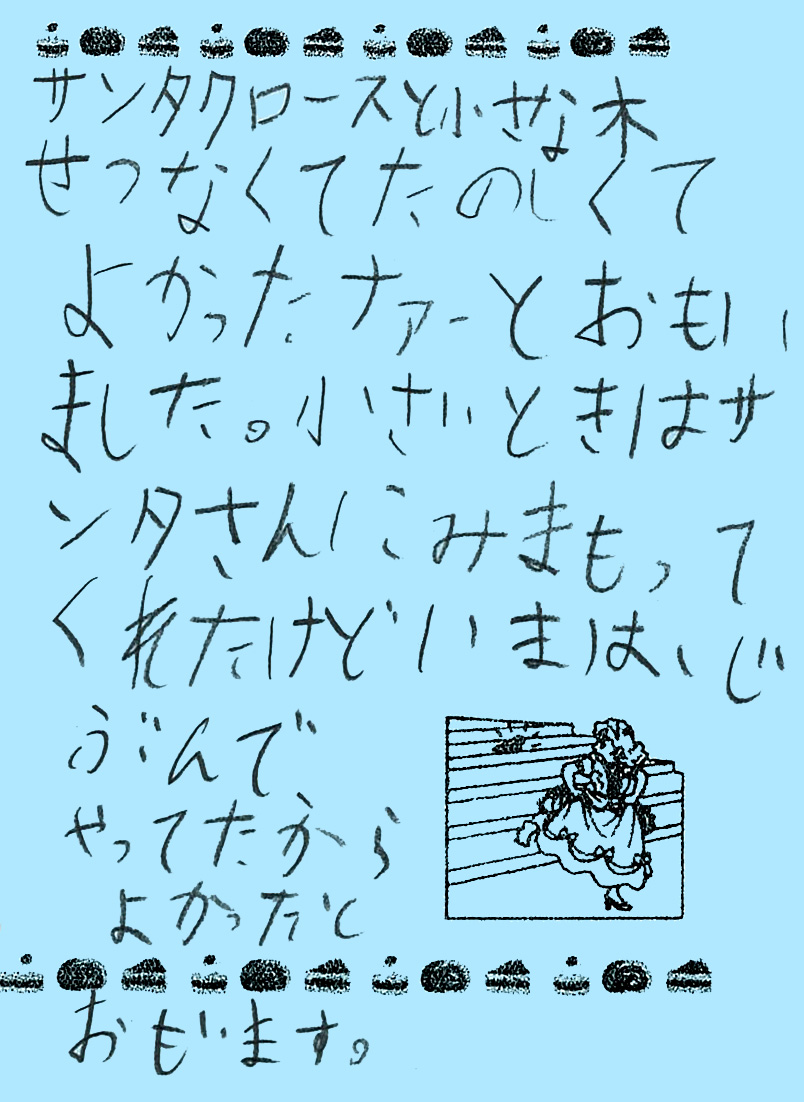 サンタクロースと小さな木
せつなくてたのしくて
よかったナァーとおもい
ました。小さいときはサ
ンタさんにみまもって
くれたけどいまは、じ
ぶんで、
やってたから
よかっただと
おもいます。